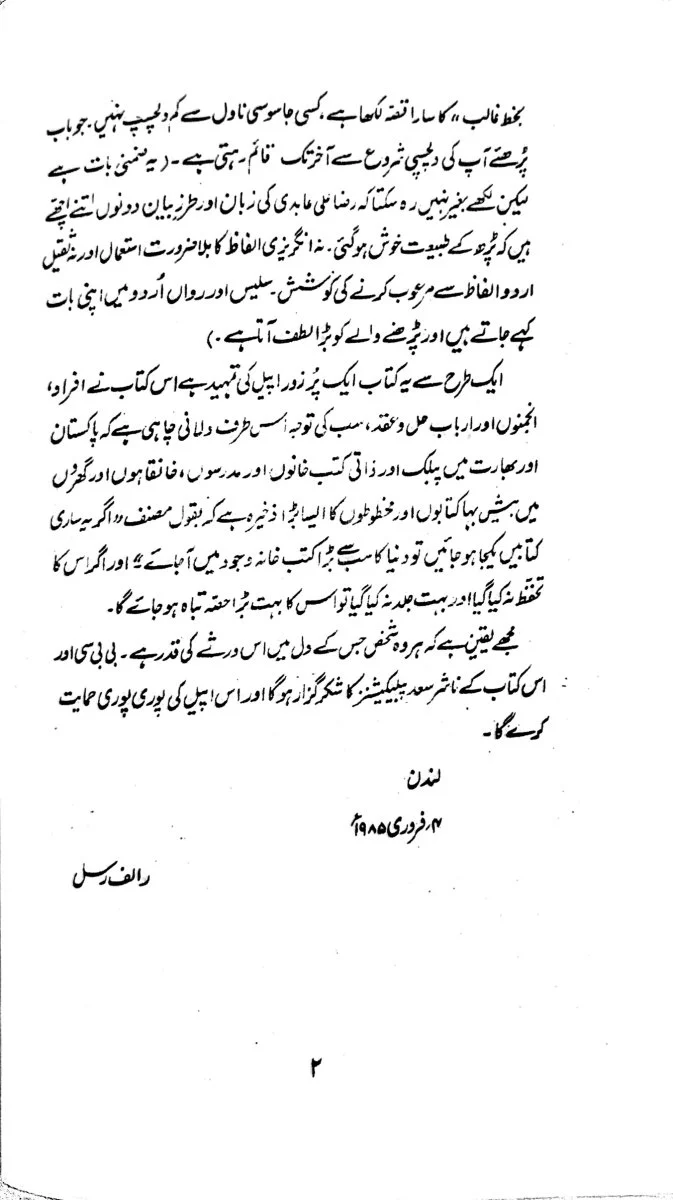 بخط غالب" کا سارا قصہ لکھا ہے، کسی جاسوسی ناول سے کم دلچسپ نہیں۔ جو باب
پڑھئے آپ کی دلچسپی شروع سے آخر تک قائم رہتی ہے۔ (یہ ضمنی بات ہے
لیکن لکھے بغیر نہیں رہ سکتا کہ رضا علی عابدی کی زبان اور طرز بیان دونوں اتنے اچھے
ہیں کہ پڑھ کے طبیعت خوش ہو گئی۔ نہ انگریزی الفاظ کا بلا ضرورت استعمال اور نہ ثقیل
اردو الفاظ سے مرعوب کرنے کی کوشش۔ سلیس اور رواں اُردو میں اپنی بات
کہے جاتے ہیں اور پڑھنے والے کو بڑا لطف آتا ہے۔)
ایک طرح سے یہ کتاب ایک پُر زور اپیل کی تمہید ہے اس کتاب نے افراد،
انجمنوں اور ارباب حل و عقد، سب کی توجہ اس طرف دلانی چاہی ہے کہ پاکستان
اور بھارت میں پبلک اور ذاتی کتب خانوں اور مدرسوں، خانقاہوں اور گھروں
میں بیش بہا کتابوں اور مخطوطوں کا ایسا بڑا ذخیرہ ہے کہ بقول مصنف "اگر یہ ساری
کتابیں یکجا ہو جائیں تو دنیا کا سب سے بڑا کتب خانہ وجود میں آجائے" اور اگر اس کا
تحفظ نہ کیا گیا اور بہت جلد نہ کیا گیا تو اس کا بہت بڑا حصّہ تباہ ہو جائے گا۔
مجھے یقین ہے کہ ہر وہ شخص جس کے دل میں اس ورثے کی قدر ہے۔ بی بی سی اور
اس کتاب کے ناشر سعد پبلیکیشنز کا شکر گزار ہو گا اور اس اپیل کی پوری پوری حمایت
کرے گا۔
لندن
۴؍ فروری ۱۹۸۵ء
رالف رسل
۲